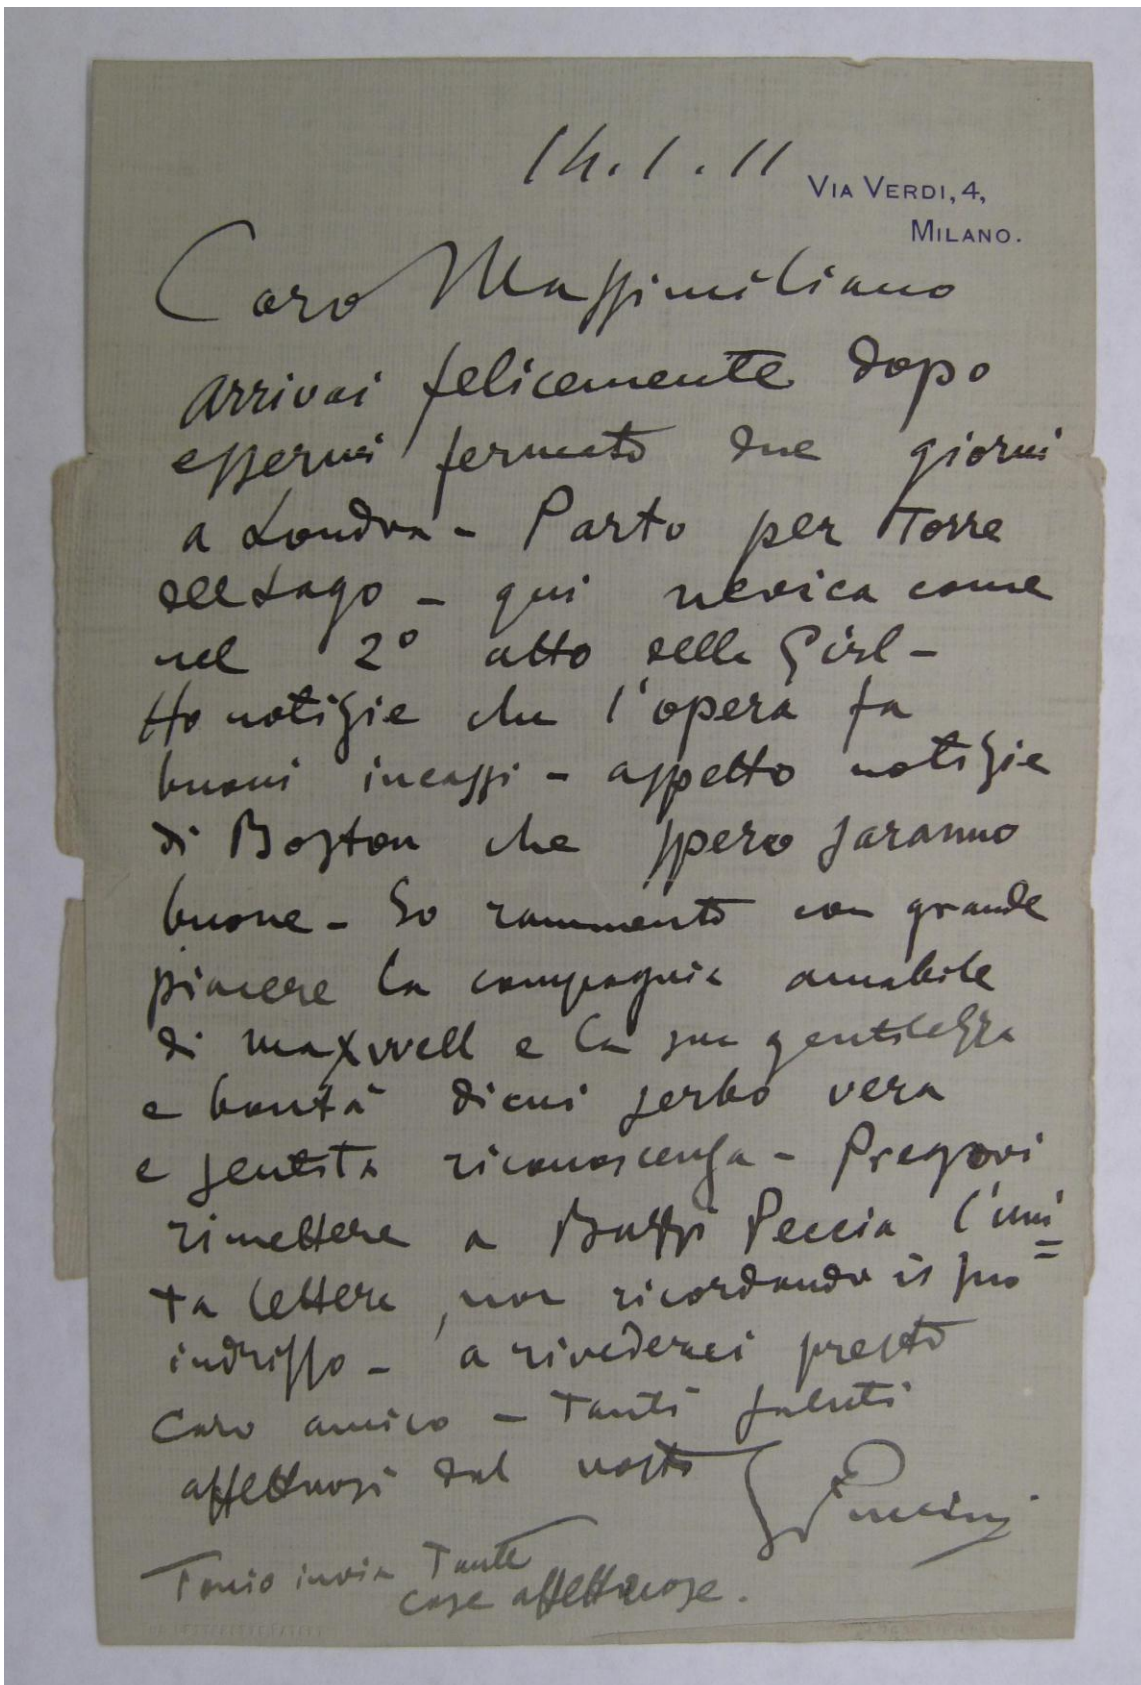 14.1.11
VIA VERDI, 4,
MILANO.
Caro Massimiliano
Arrivai felicemente dopo
essermi fermato due giorni
a Londra - Parto per Torre
del Lago - qui nevica come
nel 2° atto della Girl -
Ho notizie che l'opera fa
buoni incassi - aspetto notizie
di Boston che spero saranno
buone - Io rammento con grande
piacere la compagnia amabile
di maxwell e la sua gentilezza
e bontà di cui serbo vera
e sentita riconoscenza - Pregovi
rimettere a Buzzi Peccia l'uni=
ta lettera, non ricordando il suo
indrisso - a rivederci presto
Caro amico - Tanti saluti
affettuosi dal vostro
G Puccini
Tonio invia Tante
cose affettuose.